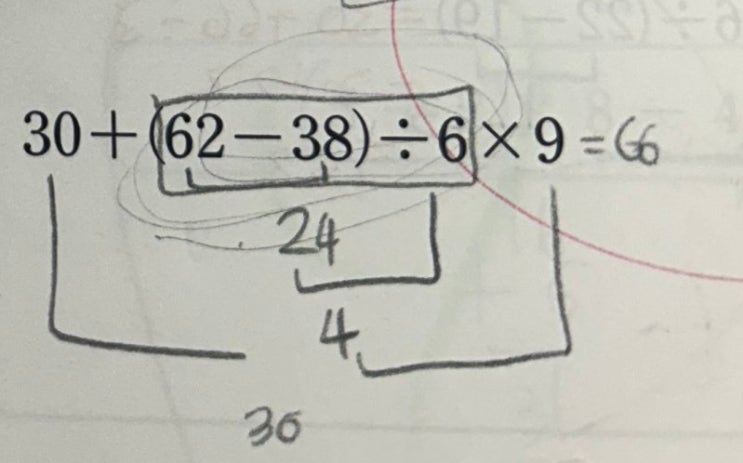 30+(62−38)÷6×9=66
24
4
30